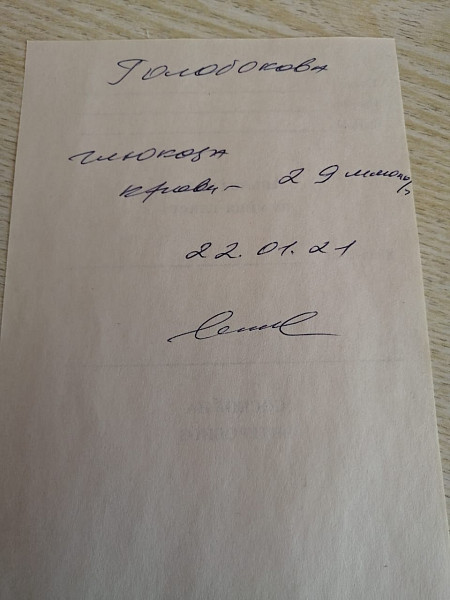 Голобокова
глюкоза
крови - 29 ммоль/л
22.01.21